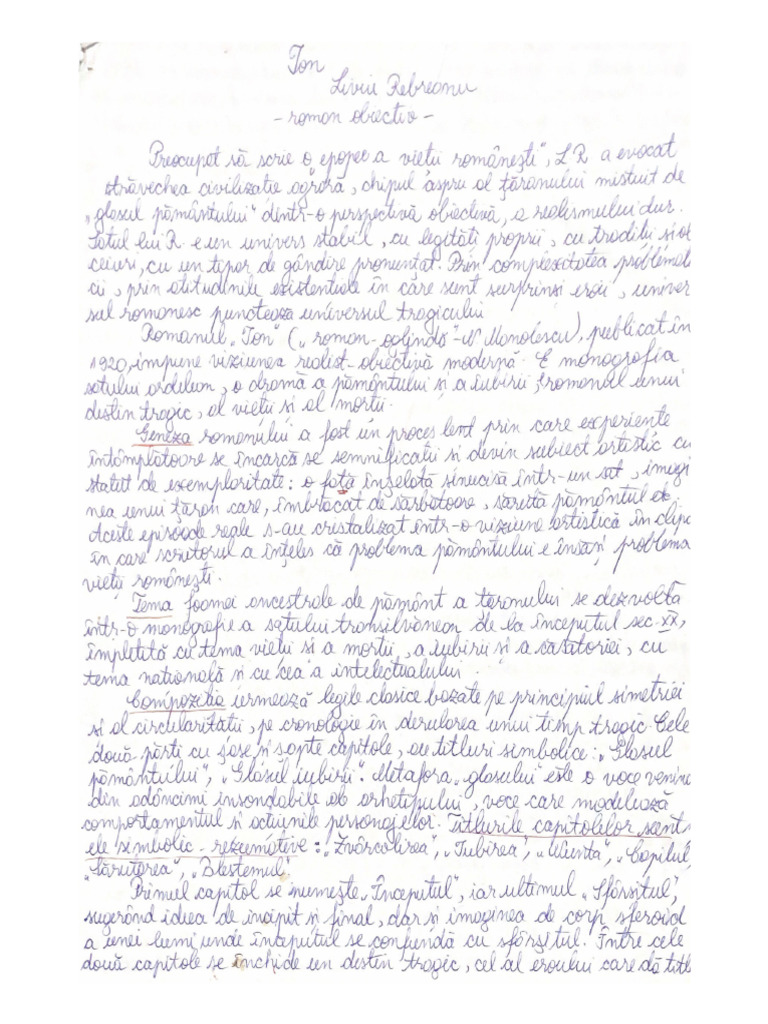 Ion
Liviu Rebreanu
- roman obiectiv -
Preocupat să scrie o „epopee a vieții românești", L R a evocat
străvechea civilizație agrară, chipul aspru al țăranului mistuit de
„glasul pământului" dintr-o perspectivă obiectivă, a realismului dur.
Satul lui R e un univers stabil, cu legități proprii, cu tradiții și ob
ceiuri, cu un tipar de gândire pronunțat. Prin complexitatea problemati
cii, prin atitudinile existențiale în care sunt surprinși eroii, univer
sul romanesc punctează universul tragicului.
Romanul „Ion" („roman-oglindă" - N Manolescu), publicat în
1920, impune viziunea realist-obiectivă modernă. E monografia
satului ardelean, o dramă a pământului și a iubirii, romanul unui
destin tragic, al vieții și al morții.
Geneza romanului a fost un proces lent prin care experiențe
întâmplătoare se încarcă se semnificații și devin subiect artistic cu
statut de exemplaritate: o fată înșelată sinucisă într-un sat, imagi
nea unui țăran care, îmbrăcat de sărbătoare, sărută pământul
Aceste episoade reale s-au cristalizat într-o viziune artistică în clipa
în care scriitorul a înțeles că problema pământului e însăși problema
vieții românești.
Tema foamei ancestrale de pământ a țăranului se dezvoltă
într-o monografie a satului transilvănean de la începutul sec. XX,
împletită cu tema vieții și a morții, a iubirii și a căsătoriei, cu
tema națională și cu cea a intelectualului.
Compoziția urmează legile clasice bazate pe principiul simetriei
și al circularității, pe cronologie în derularea unui timp tragic. Cele
două părți cu șase și șapte capitole, au titluri simbolice: „Glasul
pământului", „Glasul iubirii". Metafora „glasului" este o voce venind
din adâncimi insondabile ale arhetipului, voce care modelează
comportamentul și acțiunile personajelor. Titlurile capitolelor sunt
ele simbolic - rezumative: „Zvârcolirea", „Iubirea", „Nunta", „Copilul",
„Sărutarea", „Blestemul".
Primul capitol se numește „Începutul", iar ultimul „Sfârșitul",
sugerând ideea de incipit și final, dar și imaginea de corp sferoid
a unei lumi unde începutul se confundă cu sfârșitul. Între cele
două capitole se închide un destin tragic, cel al eroului care dă titlu